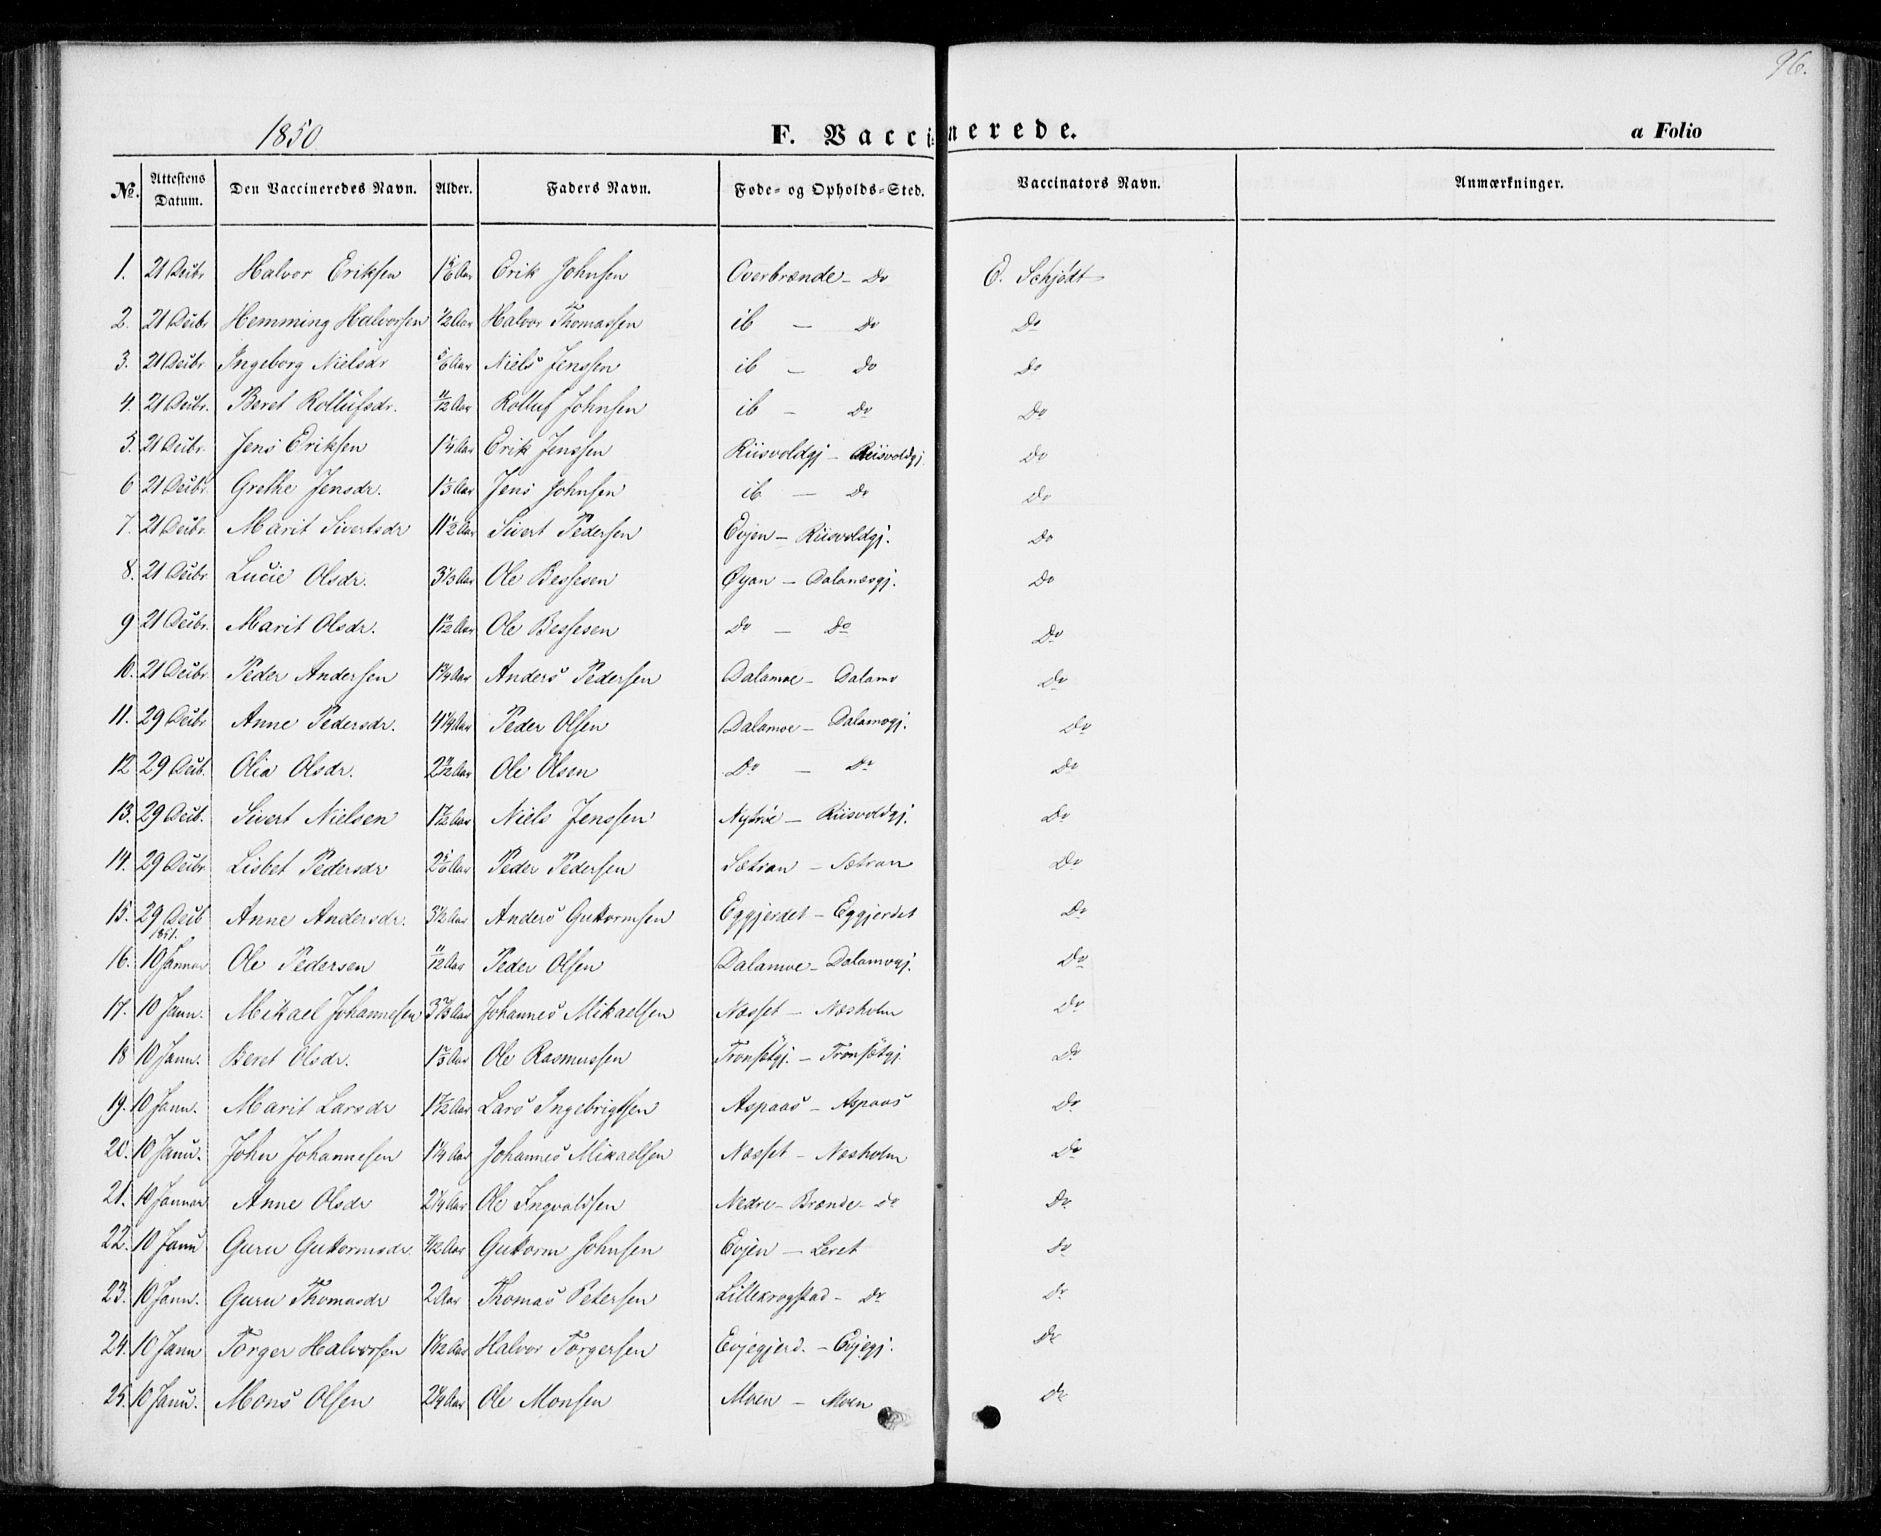 96.
1850 F. Vaccinerede. a Folio
No. Attestens Datum. Den Vaccineredes Navn. Alder. Faders Navn. Føde- og Opholds-Sted. Vaccinators Navn. Anmærkninger.
1. 21 Decbr Halvor Eriksen Aar Erik Johnsen Overbrænde - Do O. Schjödt
2. 21 Decbr Hemming Halvorsen 1/2 Aar Halvor Thomassen ib - Do Do
3. 21 Decbr Ingeborg Nielsdr 5/6 Aar Niels Jenssen ib - Do Do
4. 21 Decbr. Beret Rollufsdr. 11/12 Aar Rolluf Johnsen ib - Do Do
5. 21 Decbr. Jens Eriksen 1 1/4 Aar Erik Jenssen Riisvoldgj - Riisvoldgj Do
6 21 Decbr. Grethe Jensdr. 1 1/3 Aar Jens Johnsen ib - Do Do
7. 21 Decbr. Marit Sivertsdr 11 1/2 Aar Sivert Pedersen Evjen - Riisvoldgj. Do
8. 21 Decbr Lucie Olsdr. 3 1/3 Aar Ole Bessesen Øyan - Dalamogj. Do
9 21 Decbr. Marit Olsdr. Aar Ole Bessesen Do - Do Do
10. 21 Decbr. Peder Andersen 1 3/4 Aar Anders Pedersen Dalamoe - Dalamo Do
11. 29 Decbr Anne Pedersdr. 4 1/4 Aar Peder Olsen Dalamoe - Dalamogj. Do
12 29 Decb. Olia Olsdr. Aar Ole Olsen Do - Do Do
13. 29 Decb. Sivert Nielsen Aar Niels Jenssen Nybroe - Riisvoldgj. Do
14. 29 Decbr Lisbet Pedersdr 2 5/6 Aar Peder Pedersen Sætran - Sætran Do
15. 29 Decb Anne Andersdr. 3 1/2 Aar Anders Guttormsen Eggjerdet - Eggjerdet Do
1851.
16. 10 Januar Ole Pedersen 11/12 Aar Peder Olsen Dalamoe - Dalamogj. Do
17. 10 Janu. Mikael Johannesen Aar Johannes Mikaelsen Næsset - Næsholm Do
18 10 Janu. Beret Olsdr. Aar Ole Rasmussen Tronsetgj. - Tronsetgj. Do
19. 10 Janu. Marit Larsdr Aar Lars Ingebrigtsen Aspaas - Aspaas Do
20. 10 Janu. John Johannesen 1 1/4 Aar Johannes Mikaelsen Næsset - Næsholm Do
21. 10 Januar Anne Olsdr 2 1/4 Aar Ole Ingvaldsen Nedre-Brænde - do Do
22. 10 Janu Guru Guttormsdr. Aar Guttorm Johnsen Evjen - Leret Do
23. 10 Janu. Guru Thomasdr 2 Aar Thomas Petersen Lillekrogstad - Do Do
24. 10 Janu Torger Halvorsen Aar Halvor Torgersen Evjegjerd. - Evjegj. Do
25. 10 Janu. Mons Olsen 2 1/4 Aar Ole Monsen Moen - Moen Do